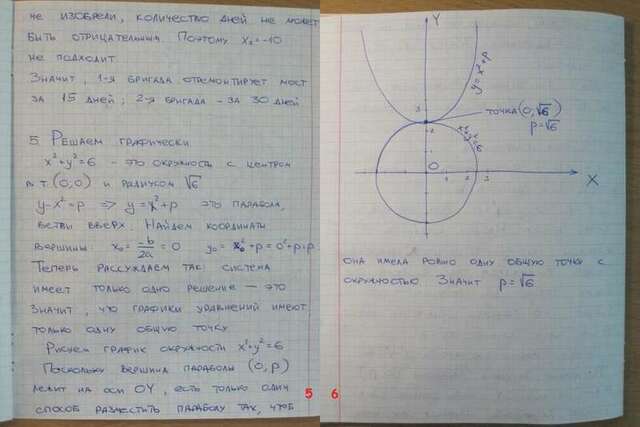 не изобрели, количество дней не может
быть отрицательным. Поэтому x₂=-10
не подходит.
Значит, 1-я бригада отремонтирует мост
за 15 дней; 2-я бригада - за 30 дней
5. Решаем графически
x²+y²=6 - это окружность с центром
в т. (0,0) и радиусом √6
y-x²=p => y=x²+p это парабола,
ветви вверх. Найдем координаты
вершины: x₀=-b/2a=0 y₀=x₀²+p=0²+p=p
Теперь рассуждаем так: система
имеет только одно решение — это
значит, что графики уравнений имеют
только одну общую точку
Рисуем график окружности x²+y²=6
Поскольку вершина параболы (0,p)
лежит на оси OY, есть только один
способ разместить параболу так, чтоб
5
6
Y
y=x²+p
3
точка (0,√6)
p=√6
2
x²+y²=6
1
0
1 2 3
X
она имела ровно одну общую точку с
окружностью. Значит p=√6